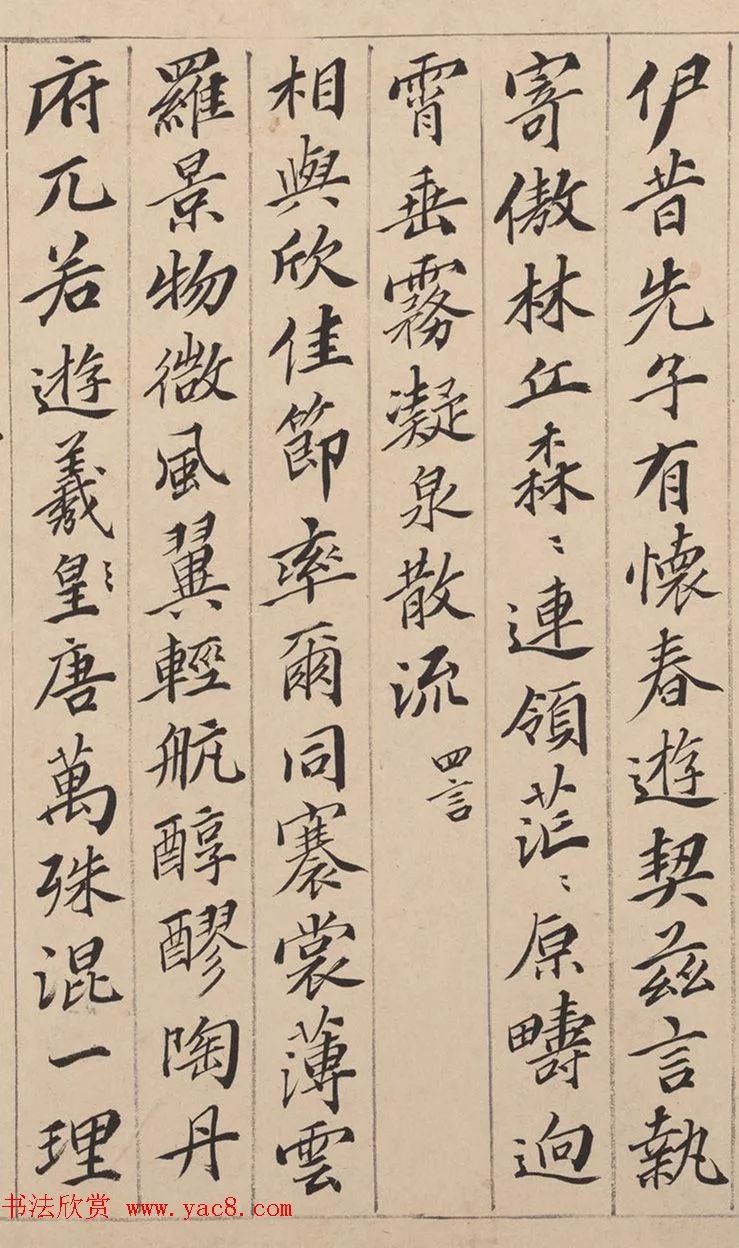 伊昔先子有懷春遊契茲言執
寄傲林丘森〻連領茫〻原疇迥
霄垂霧凝泉散流 四言
相與欣佳節率爾同褰裳薄雲
羅景物微風翼輕航醇醪陶丹
府兀若遊羲皇〻唐萬殊混一理
书法欣赏 www.yac8.com